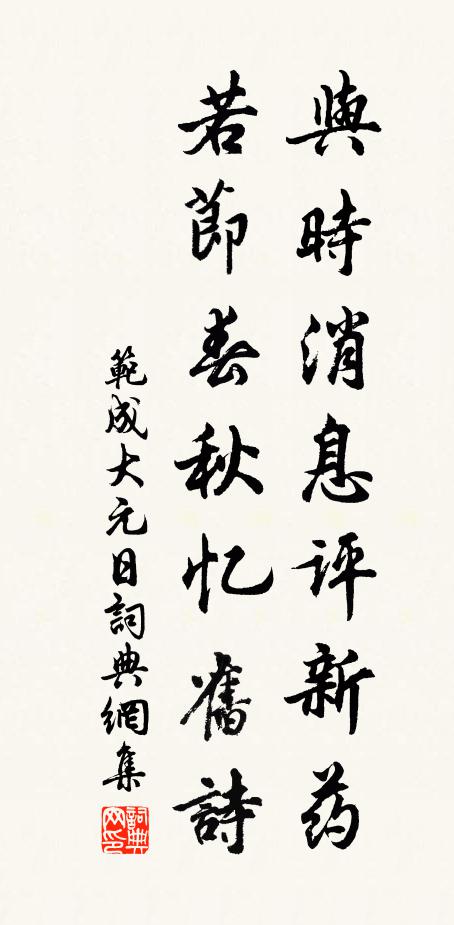 與時消息評新药
若節春秋忆舊詩
範成大元日詞典網集
詞典网印